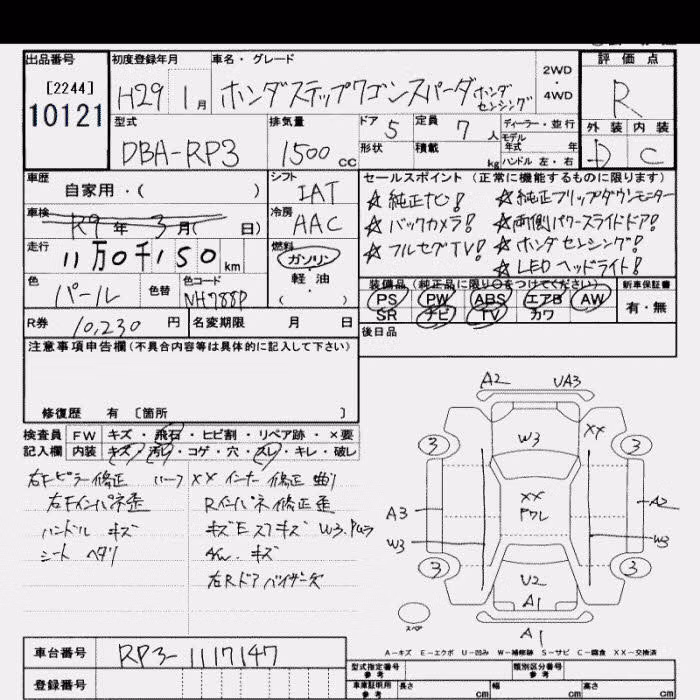 出品番号 初度登録年月 車名・グレード 評価点
[2244]
10121
H29 1月 ホンダステップワゴンスパーダ ホンダセンシング
2WD
・
4WD
R
型式 排気量 ドア 定員 ディーラー・並行
外装 内装
DBA-RP3 1500cc 5 7人
モデル年式 年
形状 積載 kg ハンドル 左・右
D C
車歴 自家用・( )
シフト IAT
セールスポイント (正常に機能するものに限ります)
☆純正ナビ! ☆純正フリップダウンモニター
☆バックカメラ! ☆両側パワースライドドア!
☆フルセグTV! ☆ホンダセンシング!
☆LEDヘッドライト!
車検 R9年 3月( 日)
冷房 AAC
走行 11万0千150km
燃料 ガソリン・軽油・( )
色 パール 色替 色コード NH788P
装備品 (純正品に限り○をつけてください) 新車保証書
PS PW ABS エアB AW 有・無
SR ナビ TV カワ
R券 10,230円 名変期限 月 日
後日品
注意事項申告欄(不具合内容等は具体的に記入して下さい)
修復歴 有 〔箇所 〕
検査員 FW キズ・飛石・ヒビ割・リペア跡・×要
記入欄 内装 キズ・汚れ・コゲ・穴・スレ・キレ・破し
右Fピラー修正 XX インナー修正 曲り
右Fインパネ歪 Rインパネ修正歪
ハンドル キズ キズEスフキズ W3.PWラ
シート ヘタリ AW. キズ
右Rドアバイザーキズ
A2 UA3
W3 XX
3 3
XX
A3 A2
W3 W3
3 3
U2
A1
スペア
A1
A-キズ E-エクボ U-凹み W-補修跡 S-サビ C-腐食 XX-交換済
車台番号 RP3-1117147
型式指定番号 参考 類別区分番号 参考
登録番号
車庫証明用 参考 長さ cm 幅 cm 高さ cm